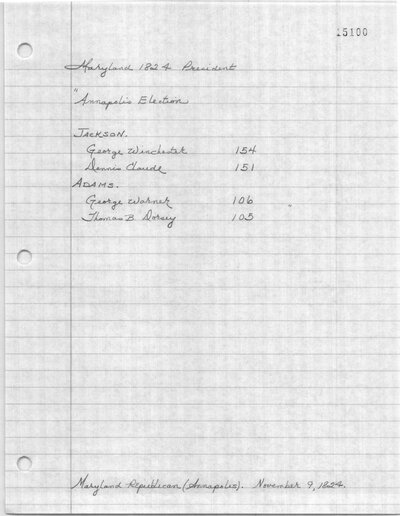 15100
Maryland 1824 President
"Annapolis Election
JACKSON.
George Winchester 154
Dennis Claude 151
ADAMS.
George Warner 106 "
Thomas B. Dorsey 105
Maryland Republican (Annapolis). November 9, 1824.